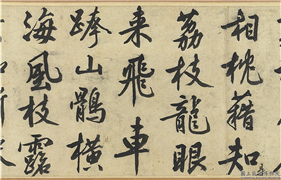 相枕藉知
荔枝龍眼
来飛車
跨山鶻橫
海風枝露